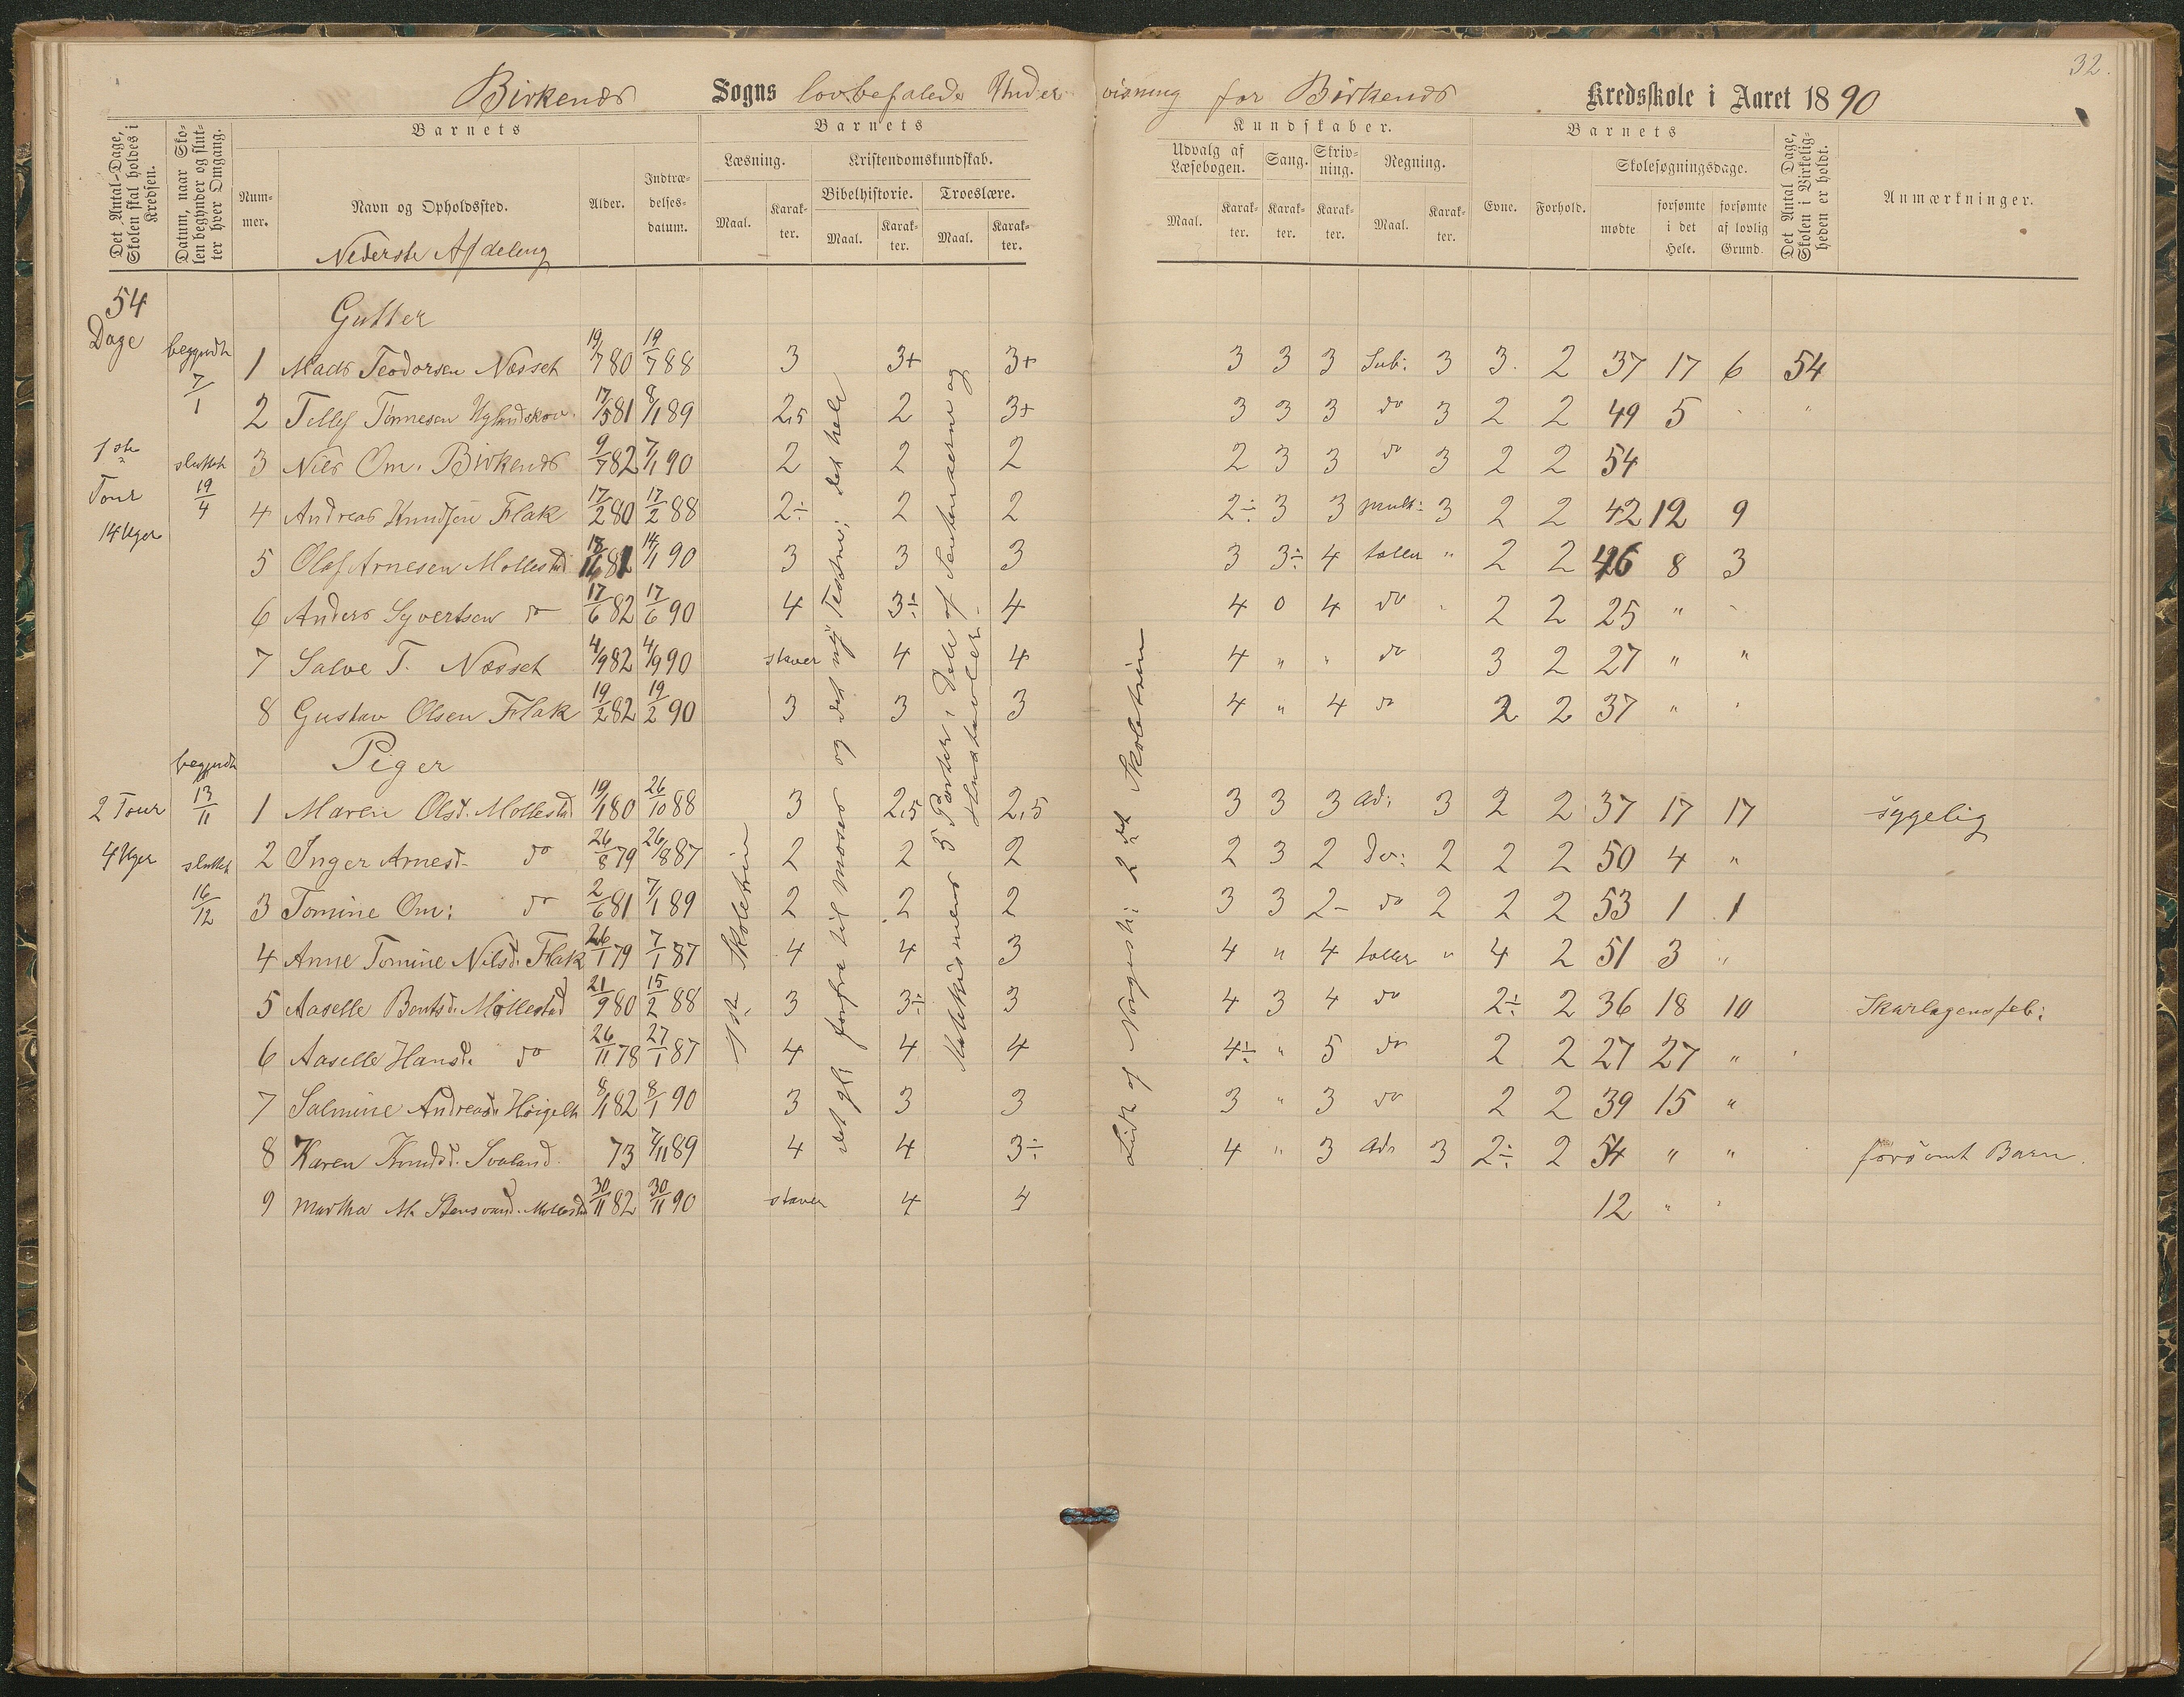 32.
Birkenes Sogns lovbefalede Undervisning for Birkenes Kredsskole i Aaret 1890
Det Antal Dage, Skolen skal holdes i Kredsen.
Datum, naar Skolen begynder og slutter hver Omgang.
Barnets
Nummer.
Navn og Opholdssted.
Alder.
Indtrædelsesdatum.
Barnets
Læsning.
Maal. Karakter.
Kristendomskundskab.
Bibelhistorie.
Maal. Karakter.
Troeslære.
Maal. Karakter.
Kundskaber.
Udvalg af Læsebogen.
Maal. Karakter.
Sang.
Karakter.
Skrivning.
Karakter.
Regning.
Maal. Karakter.
Barnets
Evne. Forhold.
Skolesøgningsdage.
mødte
forsømte i det Hele.
forsømte af lovlig Grund.
Det Antal Dage, Skolen i Virkeligheden er holdt.
Anmærkninger.
Nederste Afdeling
54 Dage
Gutter
begyndte 7/1
1 Mads Teodorsen Næsset 19/7 80 19/7 88 3 3+ 3+ 3 3 3 Sub: 3 3. 2 37 17 6 54
2 Tellef Tønnesen 17/5 81 8/1 89 2,5 2 3+ 3 3 3 do 3 2 2 49 5 "
1ste Tour 14 Uger
sluttet 19/4
3 Nils Om. Birkenes 9/7 82 7/1 90 2 2 2 2 3 3 do 3 2 2 54
4 Andreas Knudsen Flak 17/2 80 17/2 88 2÷ 2 2 2÷ 3 3 mult: 3 2 2 42 12 9
5 Olaf Arnesen Mollestad 81 14/1 90 3 3 3 3 3÷ 4 tæller " 2 2 46 8 3
6 Anders Syvertsen do 17/6 82 17/6 90 4 3÷ 4 4 0 4 do 2 2 25 " "
7 Salve T. Næsset 4/9 82 4/9 90 staver 4 4 4 " " do 3 2 27 " "
8 Gustav Olsen Flak 19/2 82 19/2 90 3 3 3 4 " 4 do 2 2 37 " "
Piger
2 Tour 4 Uger
begyndte 13/11
sluttet 16/12
1 Maren Olsd. Mollestad 19/1 80 26/10 88 3 2,5 2,5 3 3 3 ad: 3 2 2 37 17 17 sygelig
2 Inger Arnesd. do 26/8 79 26/8 87 2 2 2 2 3 2 Do: 2 2 2 50 4 "
3 Tomine Om: do 2/6 81 7/1 89 2 2 2 3 3 2- do 2 2 2 53 1 1
4 Anne Tomine Nilsd. Flak 26/1 79 7/1 87 4 4 3 4 " 4 tæller " 4 2 51 3 "
5 Aaselle Bentsd. Mollestad 21/9 80 15/2 88 3 3÷ 3 4 3 4 do 2÷ 2 36 18 10 Skarlagensfeb:
6 Aaselle Hansd. do 26/11 78 27/1 87 4 4 4 4÷ " 5 do 2 2 27 27 "
7 Salmine Andreasd. 8/1 82 8/1 90 3 3 3 3 " 3 do 2 2 39 15 "
8 Karen Knudsd. Svaland 73 7/11 89 4 4 3÷ 4 " 3 Ad: 3 2÷ 2 54 " " forsømt Barn.
9 Martha M. Mollestad 30/11 82 30/11 90 staver 4 4 12 " "
1ste Skoletrin
det gl: forfra til Moses og det ny Testm: det hele
Katekismens 5 Parter, Dele af Sentenserne og Hustavlen.
Lidt af 2det Skoletrin